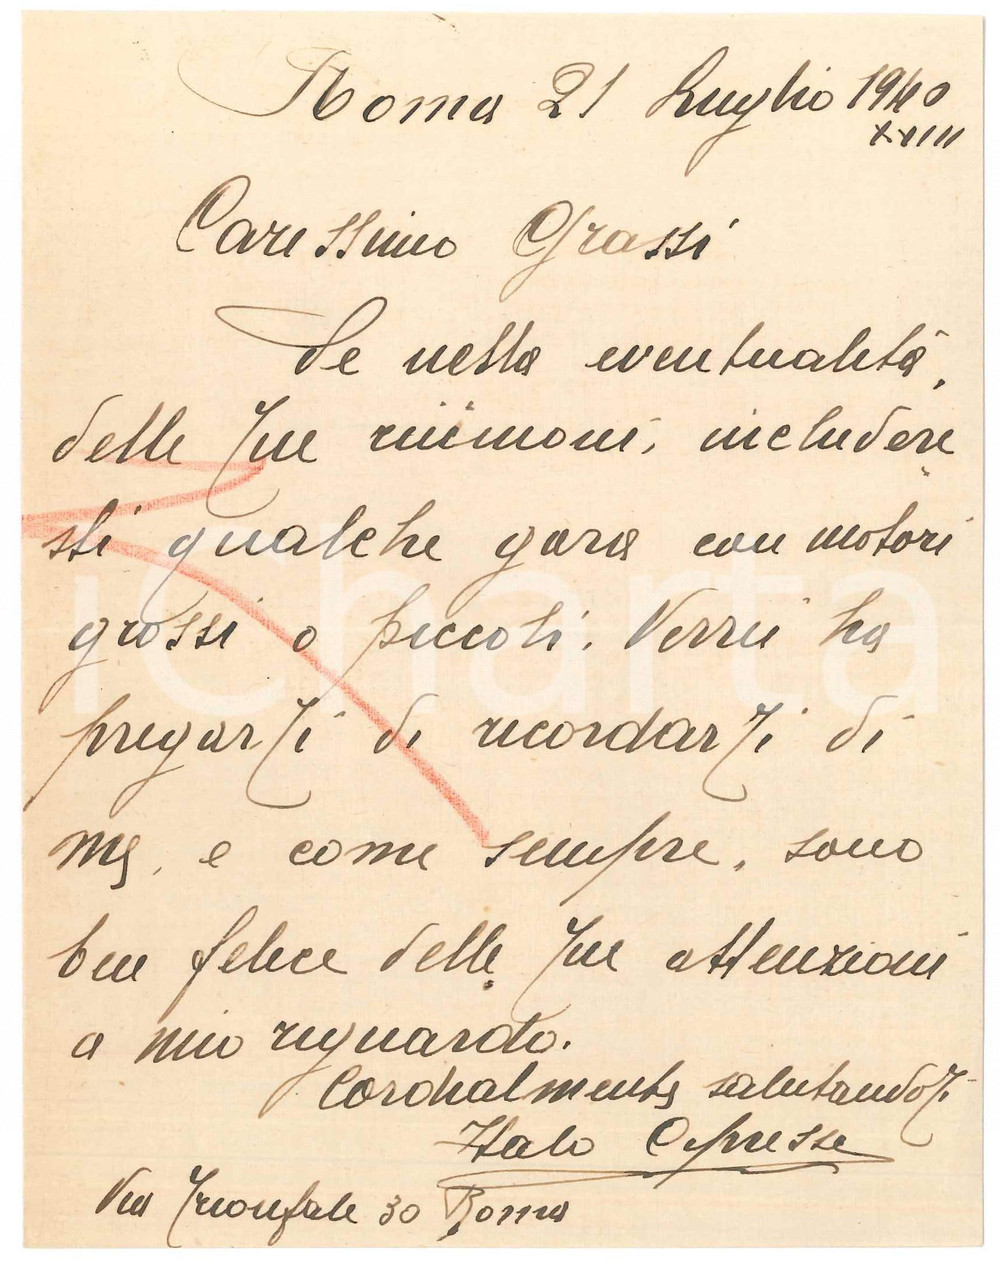 Roma 21 Luglio 1940
XVIII
Carissimo Grassi
Se nella eventualità,
delle Tue riunioni, includere
sti qualche gara con motori
grossi o piccoli. Vorrei ha
pregarTi di ricordarTi di
me, e come sempre, sono
ben felice delle Tue attenzioni
a mio riguardo.
Cordialmente salutandoTi
Italo Cipresse
Via Trionfale 30 Roma
iCharta